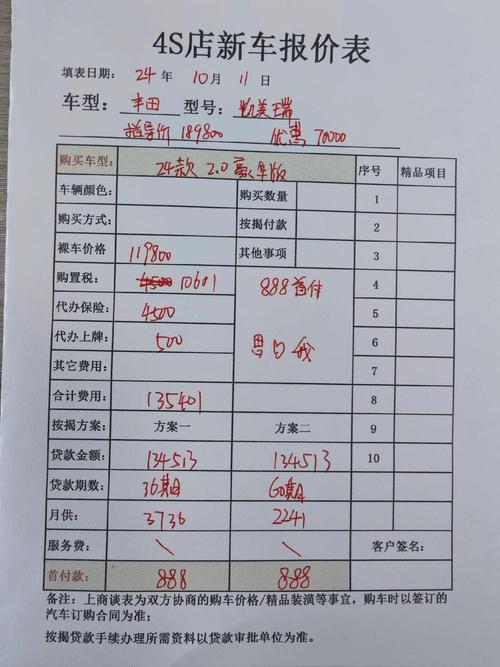 4S店新车报价表
填表日期: 24 年 10 月 11 日
车型: 丰田 型号: 凯美瑞
指导价 189800 优惠 70000
购买车型: 24款 2.0 豪华版 序号 精品项目
车辆颜色: 购买数量 1
购买方式: 按揭付款 2
裸车价格 119800 其他事项 3
购置税: 4500 10601 888首付 4
代办保险: 4500 5
代办上牌: 500 思日我 6
其它费用: 7
合计费用: 135401 8
按揭方案: 方案一 方案二 9
贷款金额: 134513 134513 10
贷款期数: 36期 60期
月供: 3736 2241
服务费: \ \ 客户签名:
首付款: 888 888
备注: 上商谈表为双方协商的购车价格/精品装潢等事宜，购车时以签订的
汽车订购合同为准;
按揭贷款手续办理所需资料以贷款审批单位为准。